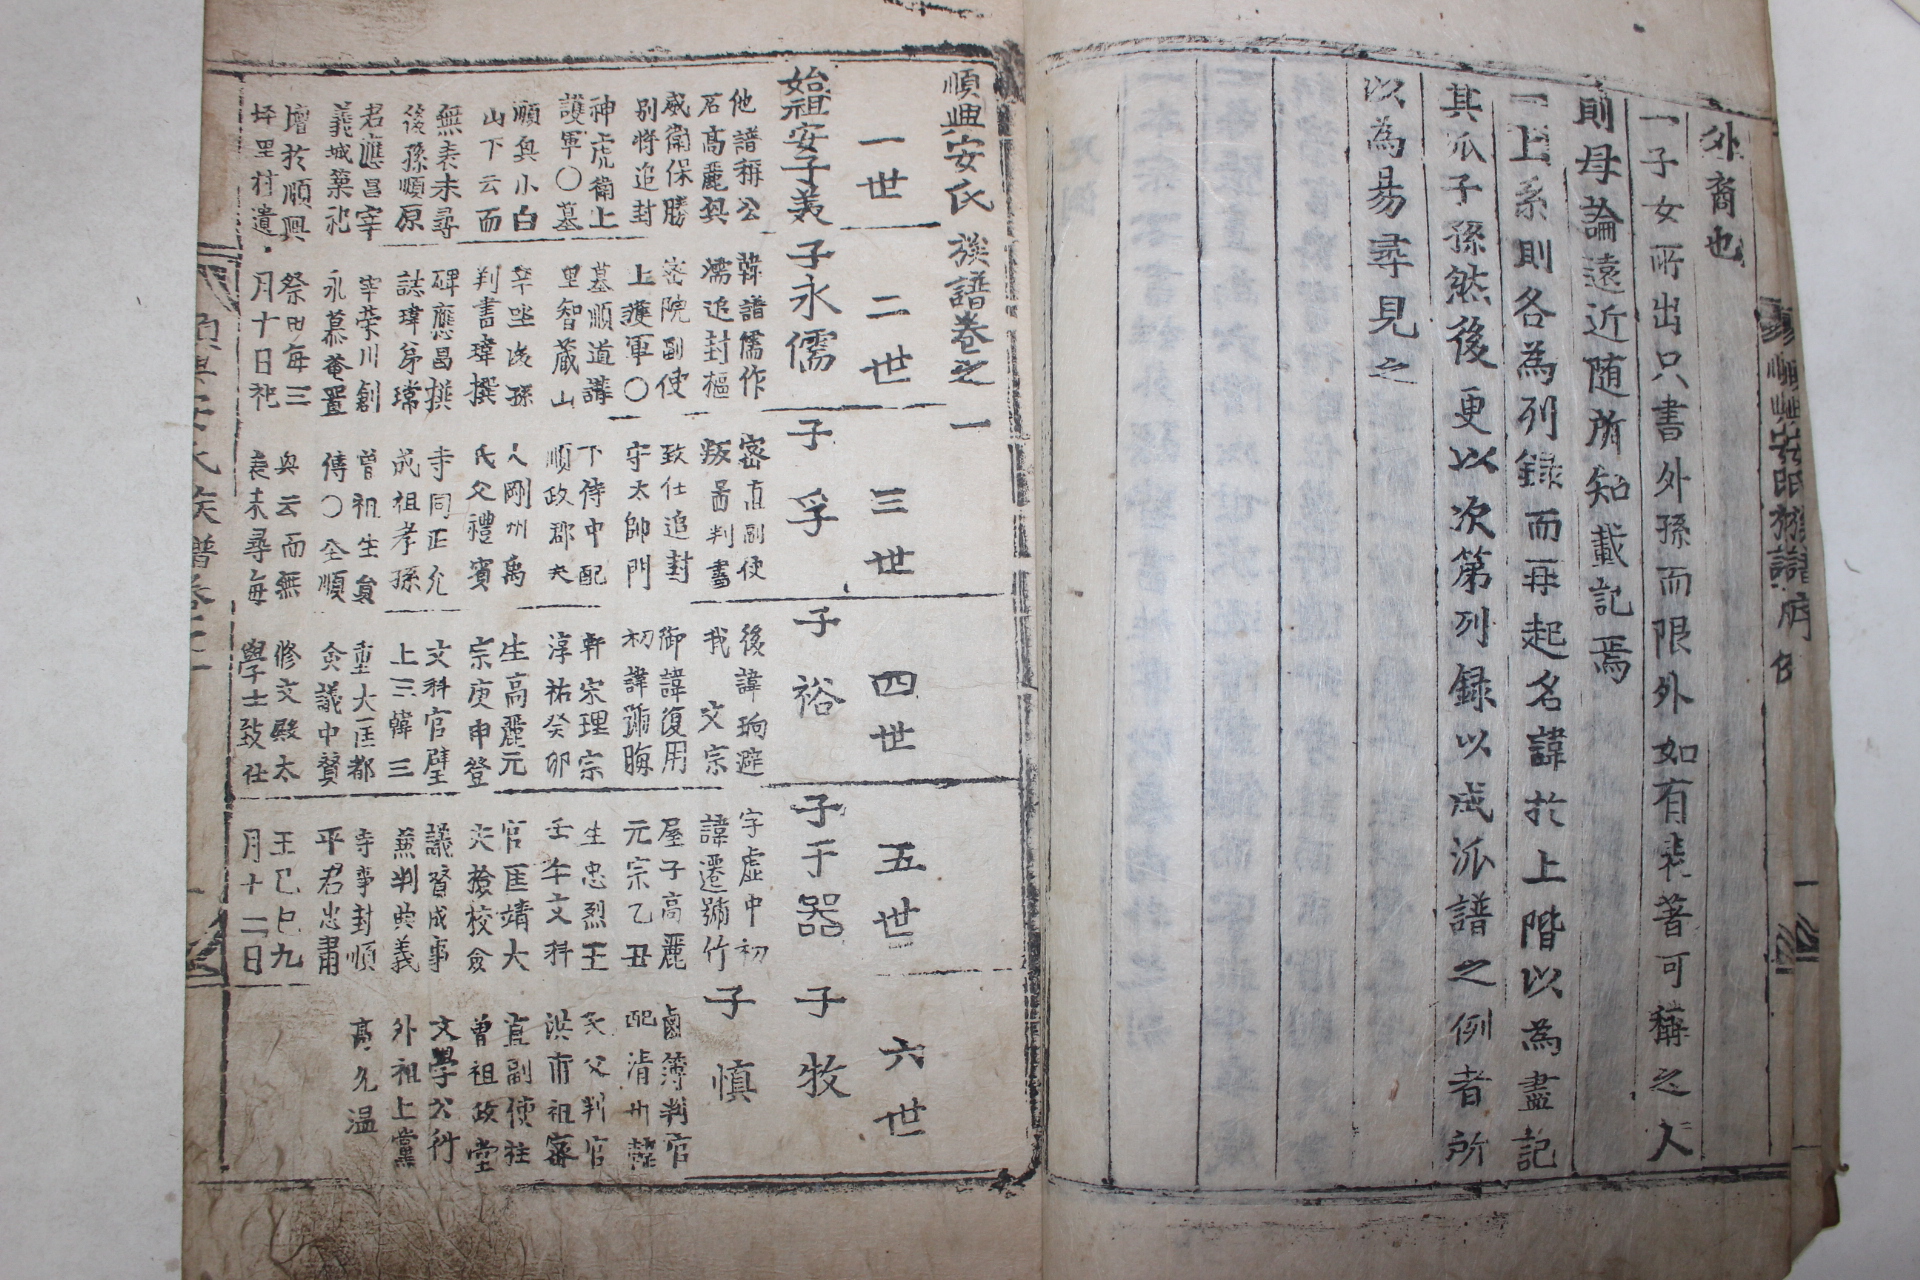 外裔也
一子女所出只書外孫而限外如有表著可稱之人
則母論遠近随所知載記焉
一上系則各為列録而再起名諱於上階以為盡記
其派子孫然後更以次第列録以成派譜之例者所
以為易尋見之
順興安氏族譜卷之一
一世
始祖安子美
他譜稱公
名高麗興
威衛保勝
别将追封
神虎衛上
護軍〇墓
順興小白
山下云而
無表未尋
後孫順原
君應昌宰
義城藁祀
增於順興
坪里村遺
二世
子永儒
韓譜儒作
濡追封樞
密院副使
上護軍〇
墓順道講
里智蔵山
辛坐後孫
判書瑋撰
碑應昌撰
誌瑋弟瑺
宰荣川創
永慕菴置
祭田每三
月十日祀
三世
子孚
密直副使
版啚判書
致仕追封
守太師門
下侍中配
順政郡夫
人剛州禹
氏父禮賓
寺同正允
成祖孝孫
曾祖生員
傳〇仝順
興云而無
表未尋每
四世
子裕
後諱珦避
我 文宗
御諱復用
初諱號晦
軒宋理宗
淳祐癸卯
生高麗元
宗庚申登
文科官壁
上三韓三
重大匡都
僉議中賛
修文殿太
學士致仕
五世
子于器
字虚中初
諱遷號竹
屋子高麗
元宗乙丑
生忠烈王
壬午文科
官匡靖大
夫撿校僉
議賛成事
兼判典義
寺事封順
平君忠肅
王己巳九
月十二日
六世
子牧
子慎
鹵簿判官
配清州韓
氏父判官
洪甫祖密
直副使柱
曾祖政堂
文學公行
外祖上黨
高允温
順興安氏族譜卷之一